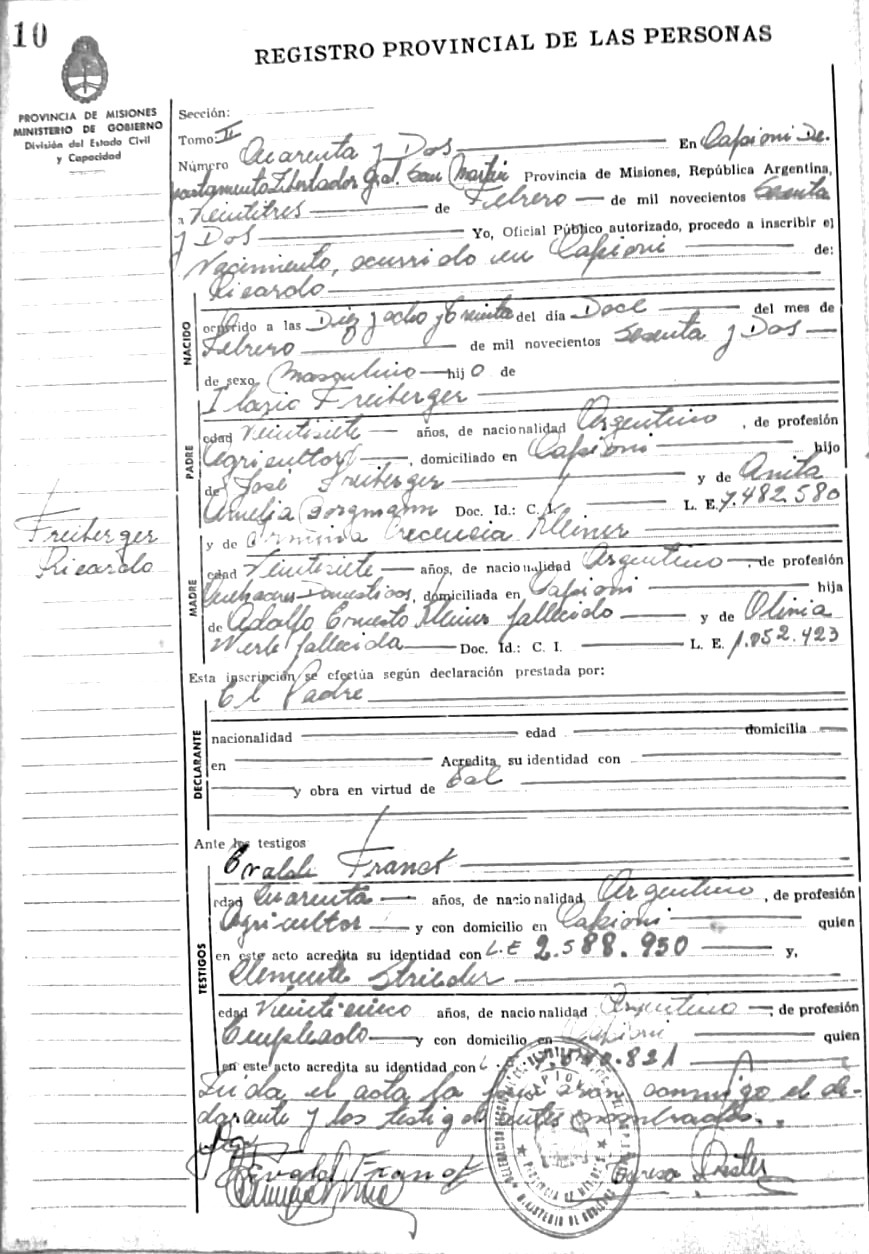 10
REGISTRO PROVINCIAL DE LAS PERSONAS
PROVINCIA DE MISIONES
MINISTERIO DE GOBIERNO
División del Estado Civil
y Capacidad
Sección:
Tomo: II
Número Cuarenta y Dos En Capioví De-
partamento Libertador Gral. San Martín Provincia de Misiones, República Argentina,
a Veintitres de Febrero de mil novecientos Sesenta
y Dos Yo, Oficial Público autorizado, procedo a inscribir el
Nacimiento, ocurrido en Capioví de:
Ricardo
NACIDO
ocurrido a las Diez y ocho y treinta del día Doce del mes de
Febrero de mil novecientos Sesenta y Dos
de sexo Masculino hijo de
Ilario Freiberger
PADRE
edad Veintisiete años, de nacionalidad Argentino, de profesión
Agricultor, domiciliado en Capioví hijo
de José Freiberger y de Anita
Amelia Borgmann Doc. Id.: C. I. L. E. 7.482.580
y de Erminda Crecencia Kleiner
Freiberger
Ricardo
MADRE
edad Veintisiete años, de nacionalidad Argentino, de profesión
Quehaceres Domesticos, domiciliada en Capioví hija
de Adolfo Ernesto Kleiner fallecido y de Olinia
Werle fallecida Doc. Id.: C. I. L. E. 1.052.423
Esta inscripción se efectúa según declaración prestada por:
El Padre
DECLARANTE
nacionalidad edad domicilia
en Acredita su identidad con
y obra en virtud de tal
Ante los testigos
Evaldo Franct
TESTIGOS
edad Cuarenta años, de nacionalidad Argentino, de profesión
Agricultor y con domicilio en Capioví quien
en este acto acredita su identidad con L.E 2.588.950 y,
Clemente Strieder
edad Veinticinco años, de nacionalidad Argentino, de profesión
Empleado y con domicilio en Capioví quien
en este acto acredita su identidad con .821
Leida el acta la firmaron conmigo el de-
clarante y los testigos antes nombrados.
Evaldo Franct
PROVINCIA DE MISIONES
MINISTERIO DE GOBIERNO